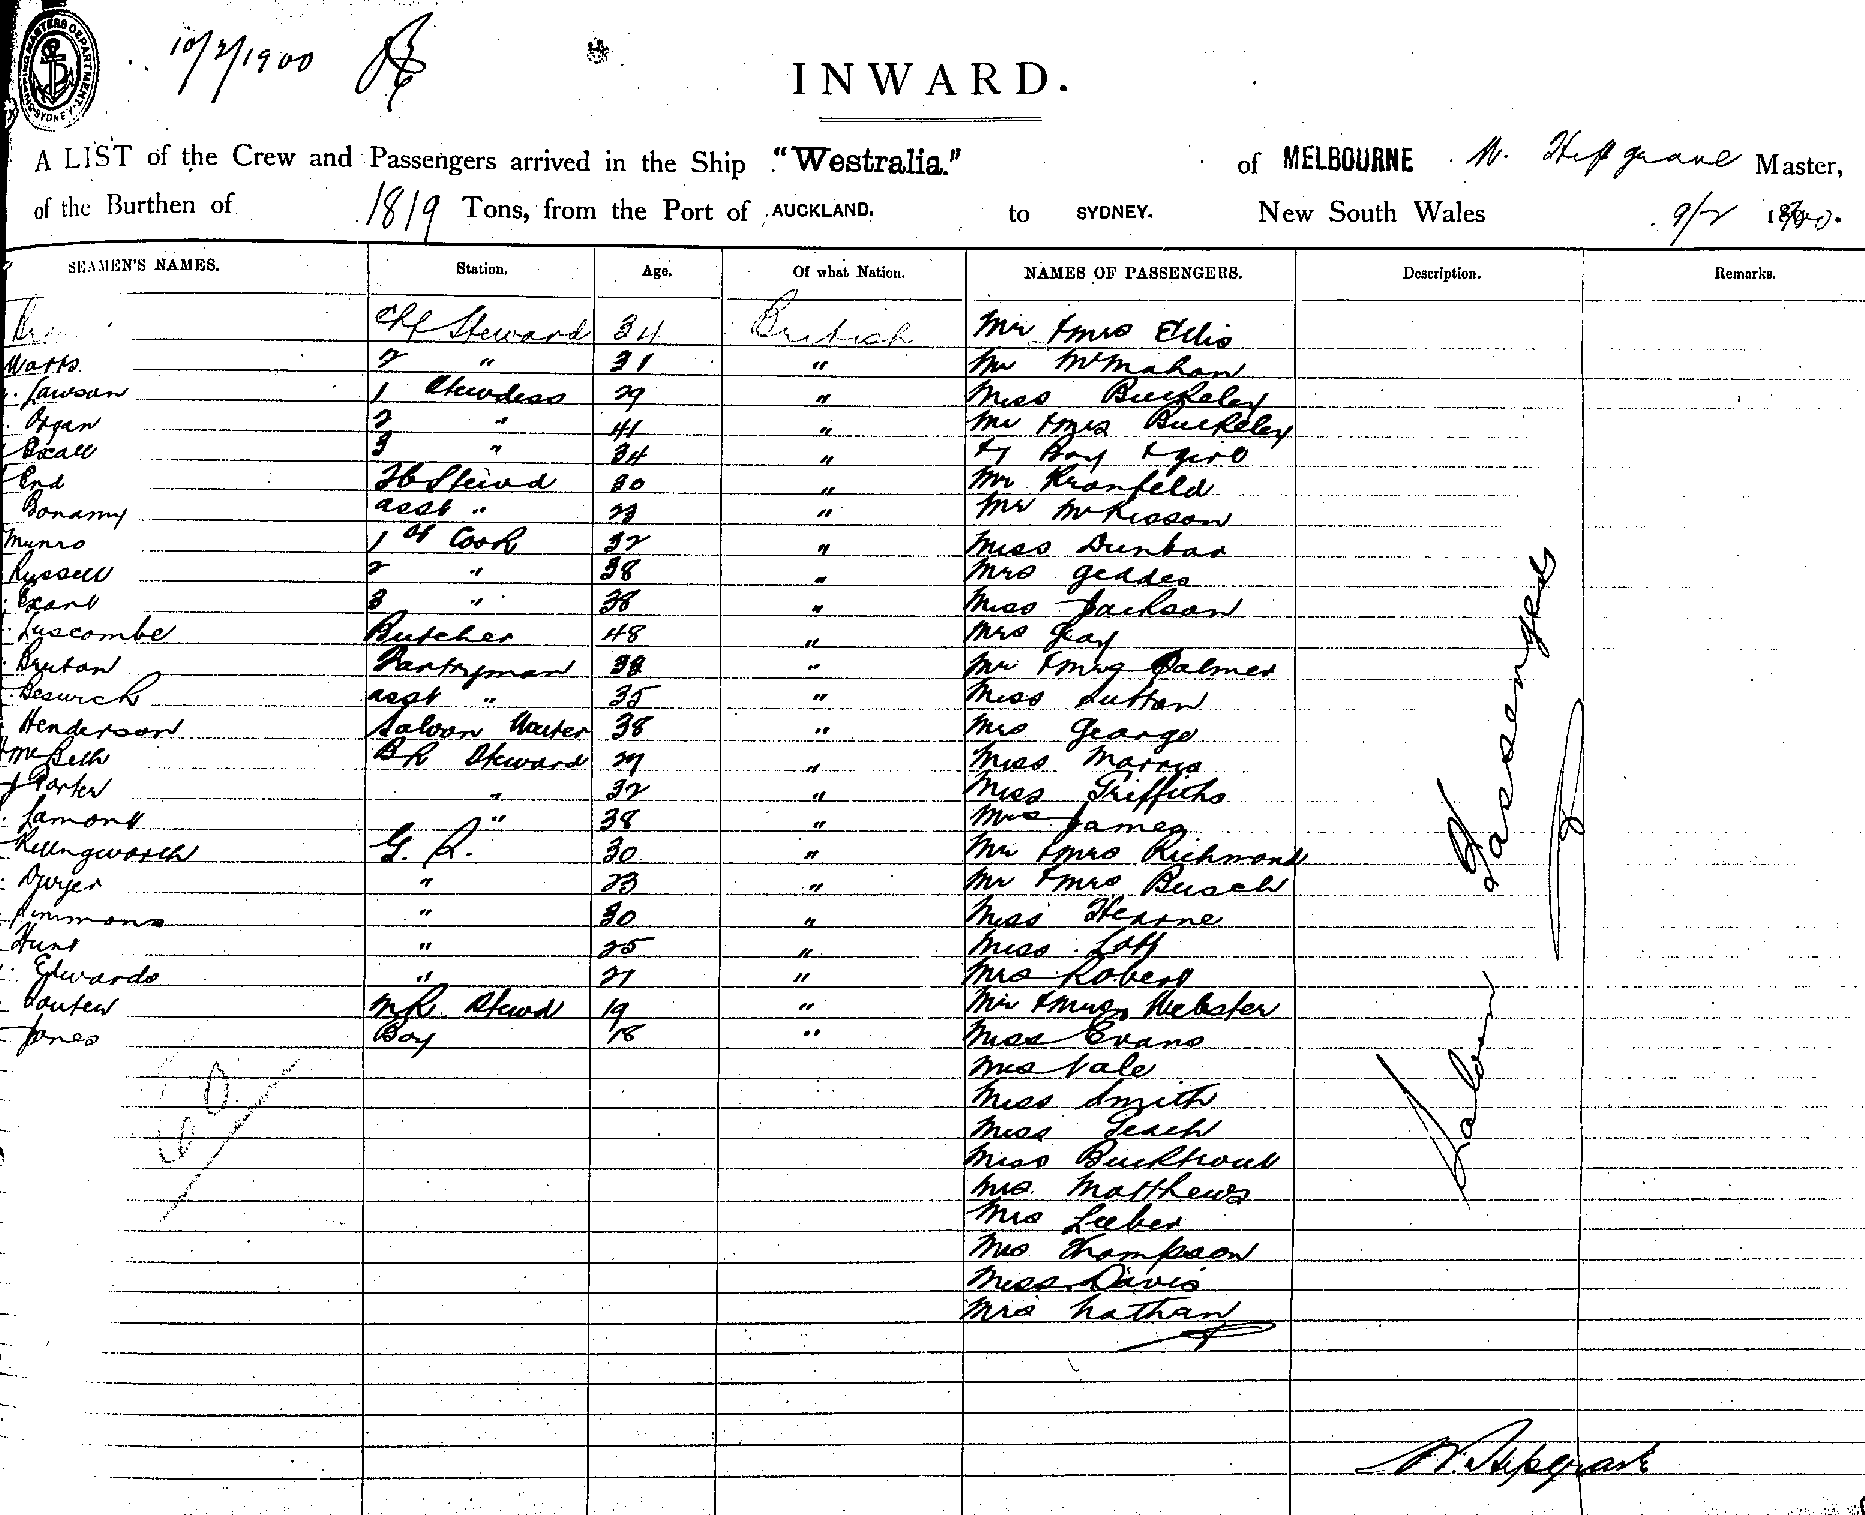 SHIPPING MASTERS DEPARTMENT SYDNEY
10/2/1900
INWARD.
A LIST of the Crew and Passengers arrived in the Ship "Westralia." of MELBOURNE W. Hipgrave Master,
of the Burthen of 1819 Tons, from the Port of AUCKLAND. to SYDNEY. New South Wales 9/2 1900.
SEAMEN'S NAMES. Station. Age. Of what Nation. NAMES OF PASSENGERS. Description. Remarks.
Steward 34 British Mr & Mrs Ellis
Watts 2 " 31 " Mr McMahon
Lawson 1 Stewdess 29 " Miss Buckeley
Organ 2 " 41 " Mr & Mrs Buckeley
3 " 34 " Boy & girl
End Stewd 30 " Mr Kronfeld
Bonamy asst " 23 " Mr McKisson
Munro 1st Cook 32 " Miss Dunbar
Russell 2 " 38 " Mrs Geddes
3 " 38 " Miss Jackson
Luscombe Butcher 48 " Mrs Gay
Bruton Pantryman 38 " Mr & Mrs Palmer
Beswick asst " 35 " Miss Sutton
Henderson Saloon Waiter 38 " Mrs George
McBeth BR Steward 29 " Miss Morris
Porter " 32 " Miss Griffiths
Lamont " 38 " Mrs James
Killingworth G. R. 30 " Mr & Mrs Richmond
Dwyer " 23 " Mr & Mrs Busch
Simmons " 30 " Miss Hearne
Hunt " 25 " Miss
Edwards " 21 " Mrs Robert
MR Stewd 19 " Mr & Mrs Webster
Jones Boy 18 " Miss Evans
Mrs Vale
Miss Smith
Miss Leach
Miss Bucktrout
Mrs Matthews
Mrs Lieber
Mrs Thompson
Miss Davis
Mrs Nathan
Saloon Passengers
60
W. Hipgrave